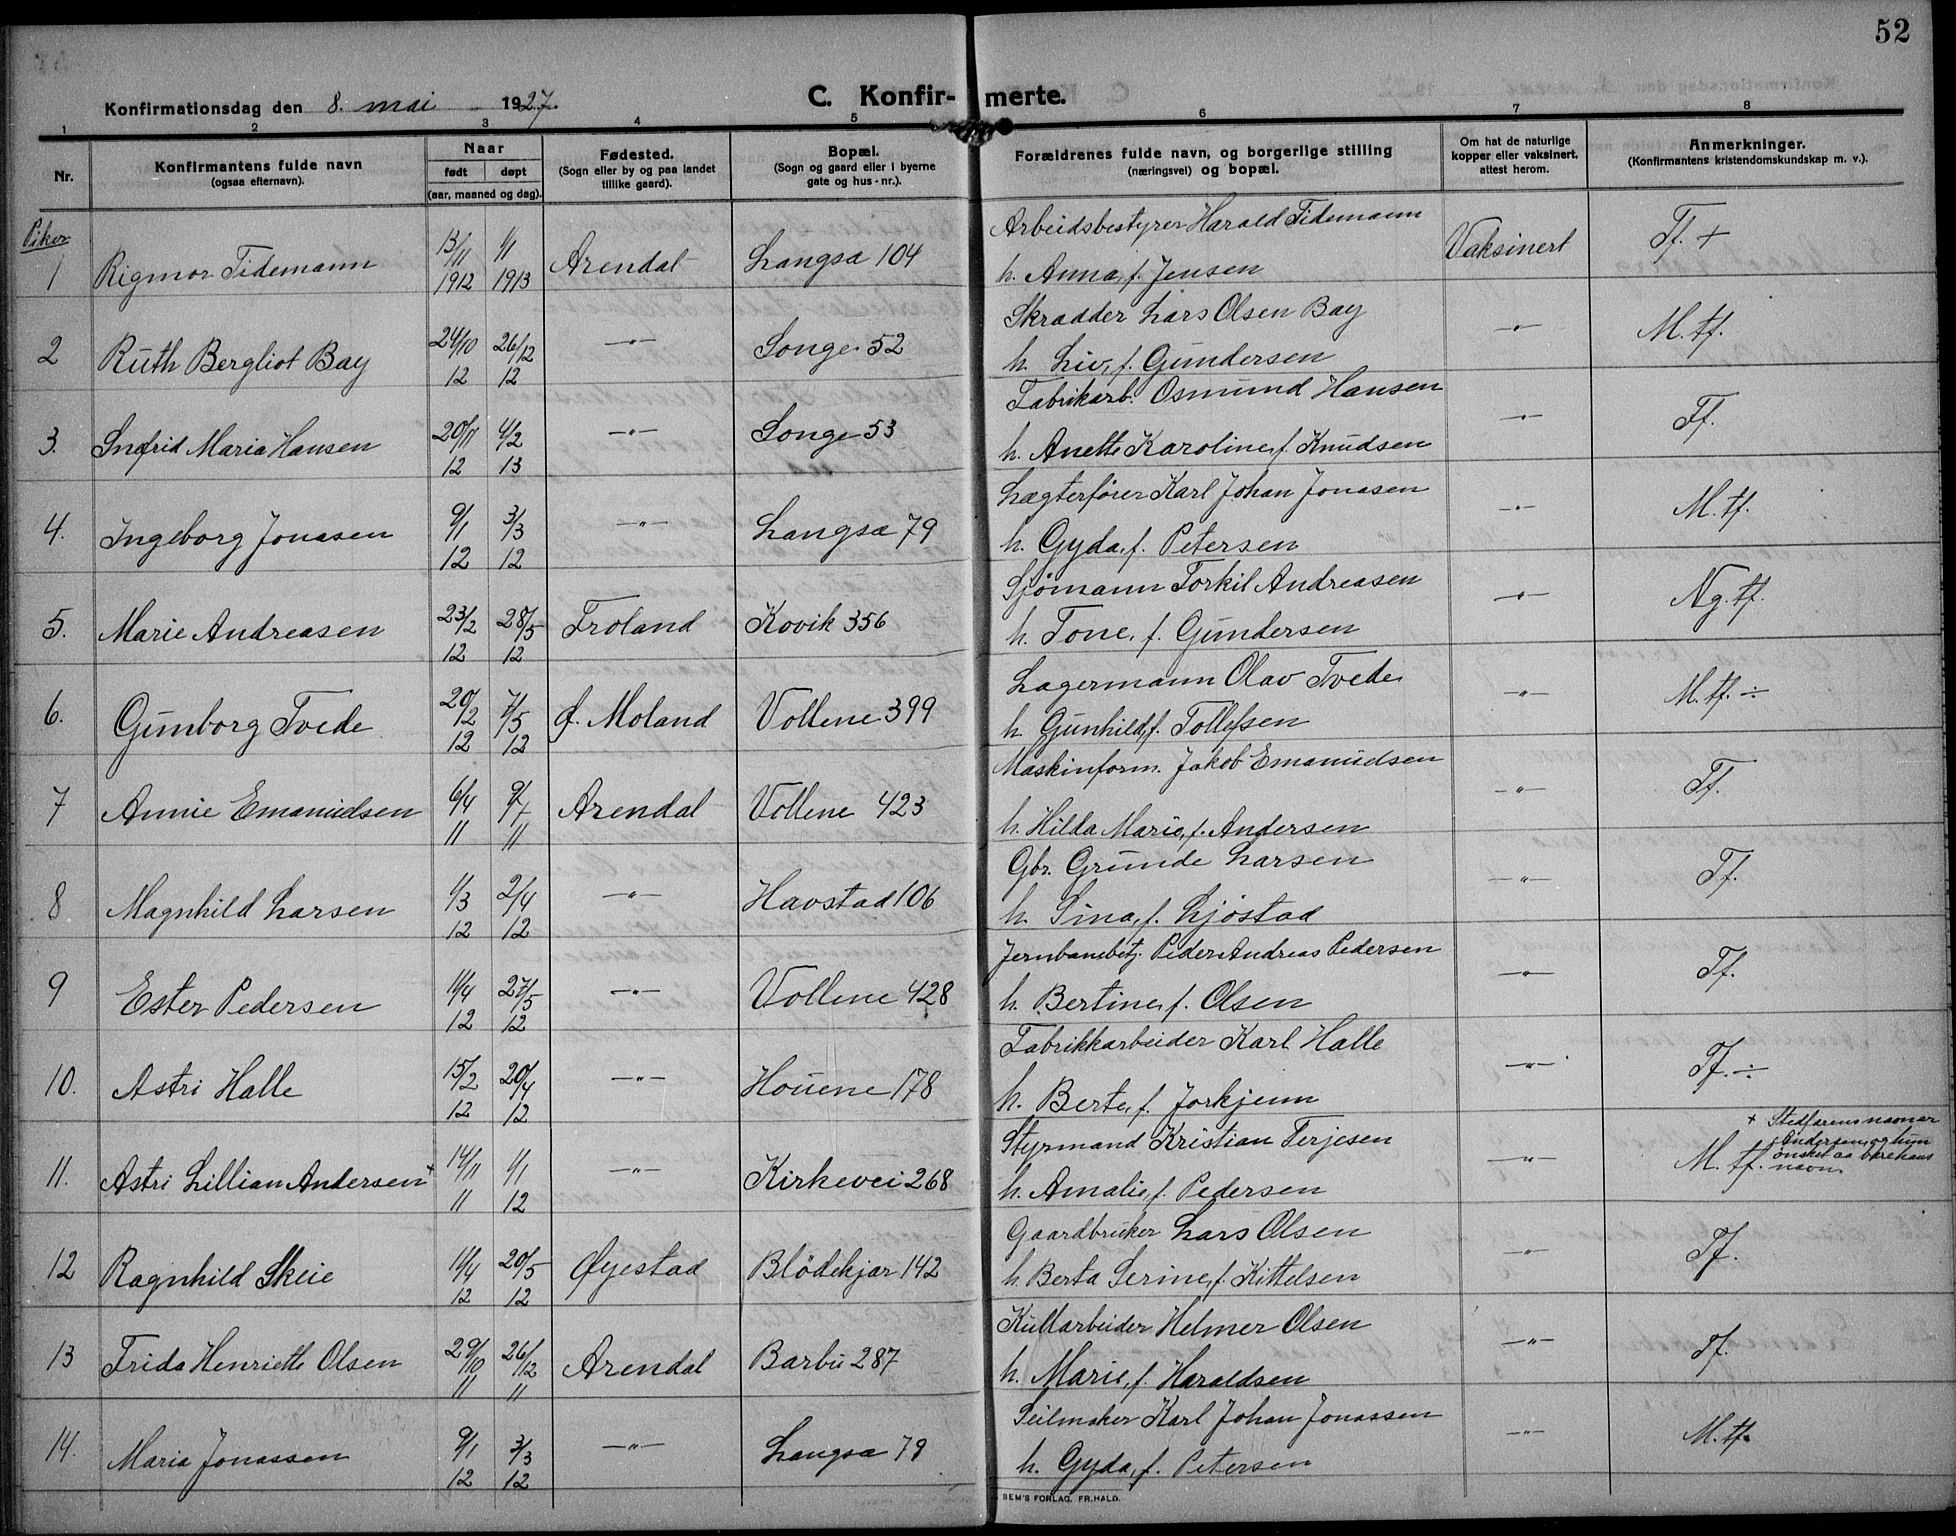 52
Konfirmationsdag den 8. mai 1927. C. Konfirmerte.
1 2 3 4 5 6 7 8
Nr. Konfirmantens fulde navn (ogsaa efternavn). Naar født døpt (aar, maaned og dag). Fødested. (Sogn eller by og paa landet tillike gaard). Bopæl. (Sogn og gaard eller i byerne gate og hus-nr.). Forældrenes fulde navn, og borgerlige stilling (næringsvei) og bopæl. Om hat de naturlige kopper eller vaksinert, attest herom. Anmerkninger. (Konfirmantens kristendomskundskap m. v.).
Piker
Arbeidsbestyrer Harald Tidemann
1 Rigmor Tidemann 13/11 1912 1/1 1913 Arendal Langsa 104 h. Anna, f. Jensen Vaksinert Tf. +
Skradder Lars Olsen Bay
2 Ruth Bergliot Bay 24/10 12 26/12 12 —"— Songe 52 h. Liv, f. Gundersen —"— M. tf.
Fabrikarb. Osmund Hansen
3. Ingrid Maria Hansen 20/11 12 4/2 13 —"— Songe 53 h. Anette Karoline, f. Knudsen —"— Tf.
Lægterfører Karl Johan Jonasen
4. Ingeborg Jonasen 9/1 12 3/3 12 —"— Langsa 79 h. Gyda, f. Petersen —"— M. tf.
Sjømann Torkil Andreasen
5. Marie Andreasen 23/2 12 28/5 12 Froland Kovik 356 h. Tone, f. Gundersen —"— Ng. tf.
Lagermann Olav Tvede
6. Gunborg Tvede 20/2 12 7/5 12 Ø. Moland Vollene 399 h. Gunhild, f. Tollefsen —"— M. tf. ÷
Maskinform. Jakob Emanuelsen
7 Annie Emanuelsen 6/4 11 9/7 11 Arendal Vollene 423 h. Hilda Marie, f. Andersen —"— Tf.
Gbr. Grunde Larsen
8 Magnhild Larsen 1/3 12 2/4 12 —"— Havstad 106 h. Sina, f. Ljøstad —"— Tf.
Jernbanebetj. Peder Andreas Pedersen
9 Ester Pedersen 11/4 12 27/5 12 —"— Vollene 428 h. Bertine, f. Olsen —"— Tf.
Fabrikkarbeider Karl Halle
10. Astri Halle 15/2 12 20/4 12 —"— Houene 178 h. Berte, f. Jorkjenn —"— Tf. ÷
Styrmand Kristian Terjesen
11. Astri Lillian Andersen + 14/11 11 1/1 12 —"— Kirkevei 268 h. Amalie, f. Pedersen —"— M. tf.
+ Stedfarens navn er
Andersen, og hun
ønsket aa bære hans
navn.
Gaardbruker Lars Olsen
12 Ragnhild Skeie 11/4 12 20/5 12 Øyestad Blödekjær 142 h. Berta Serine, f. Kittelsen —"— Tf.
Kullarbeider Helmer Olsen
13 Frida Henriette Olsen 29/10 11 26/12 11 Arendal Barbu 287 h. Marie, f. Haraldsen —"— Tf.
Seilmaker Karl Johan Jonassen
14. Maria Jonassen 9/1 12 3/3 12 —"— Langsa 79 h. Gyda, f. Petersen —"— M. tf.
SEM'S FORLAG, FR. HALD.